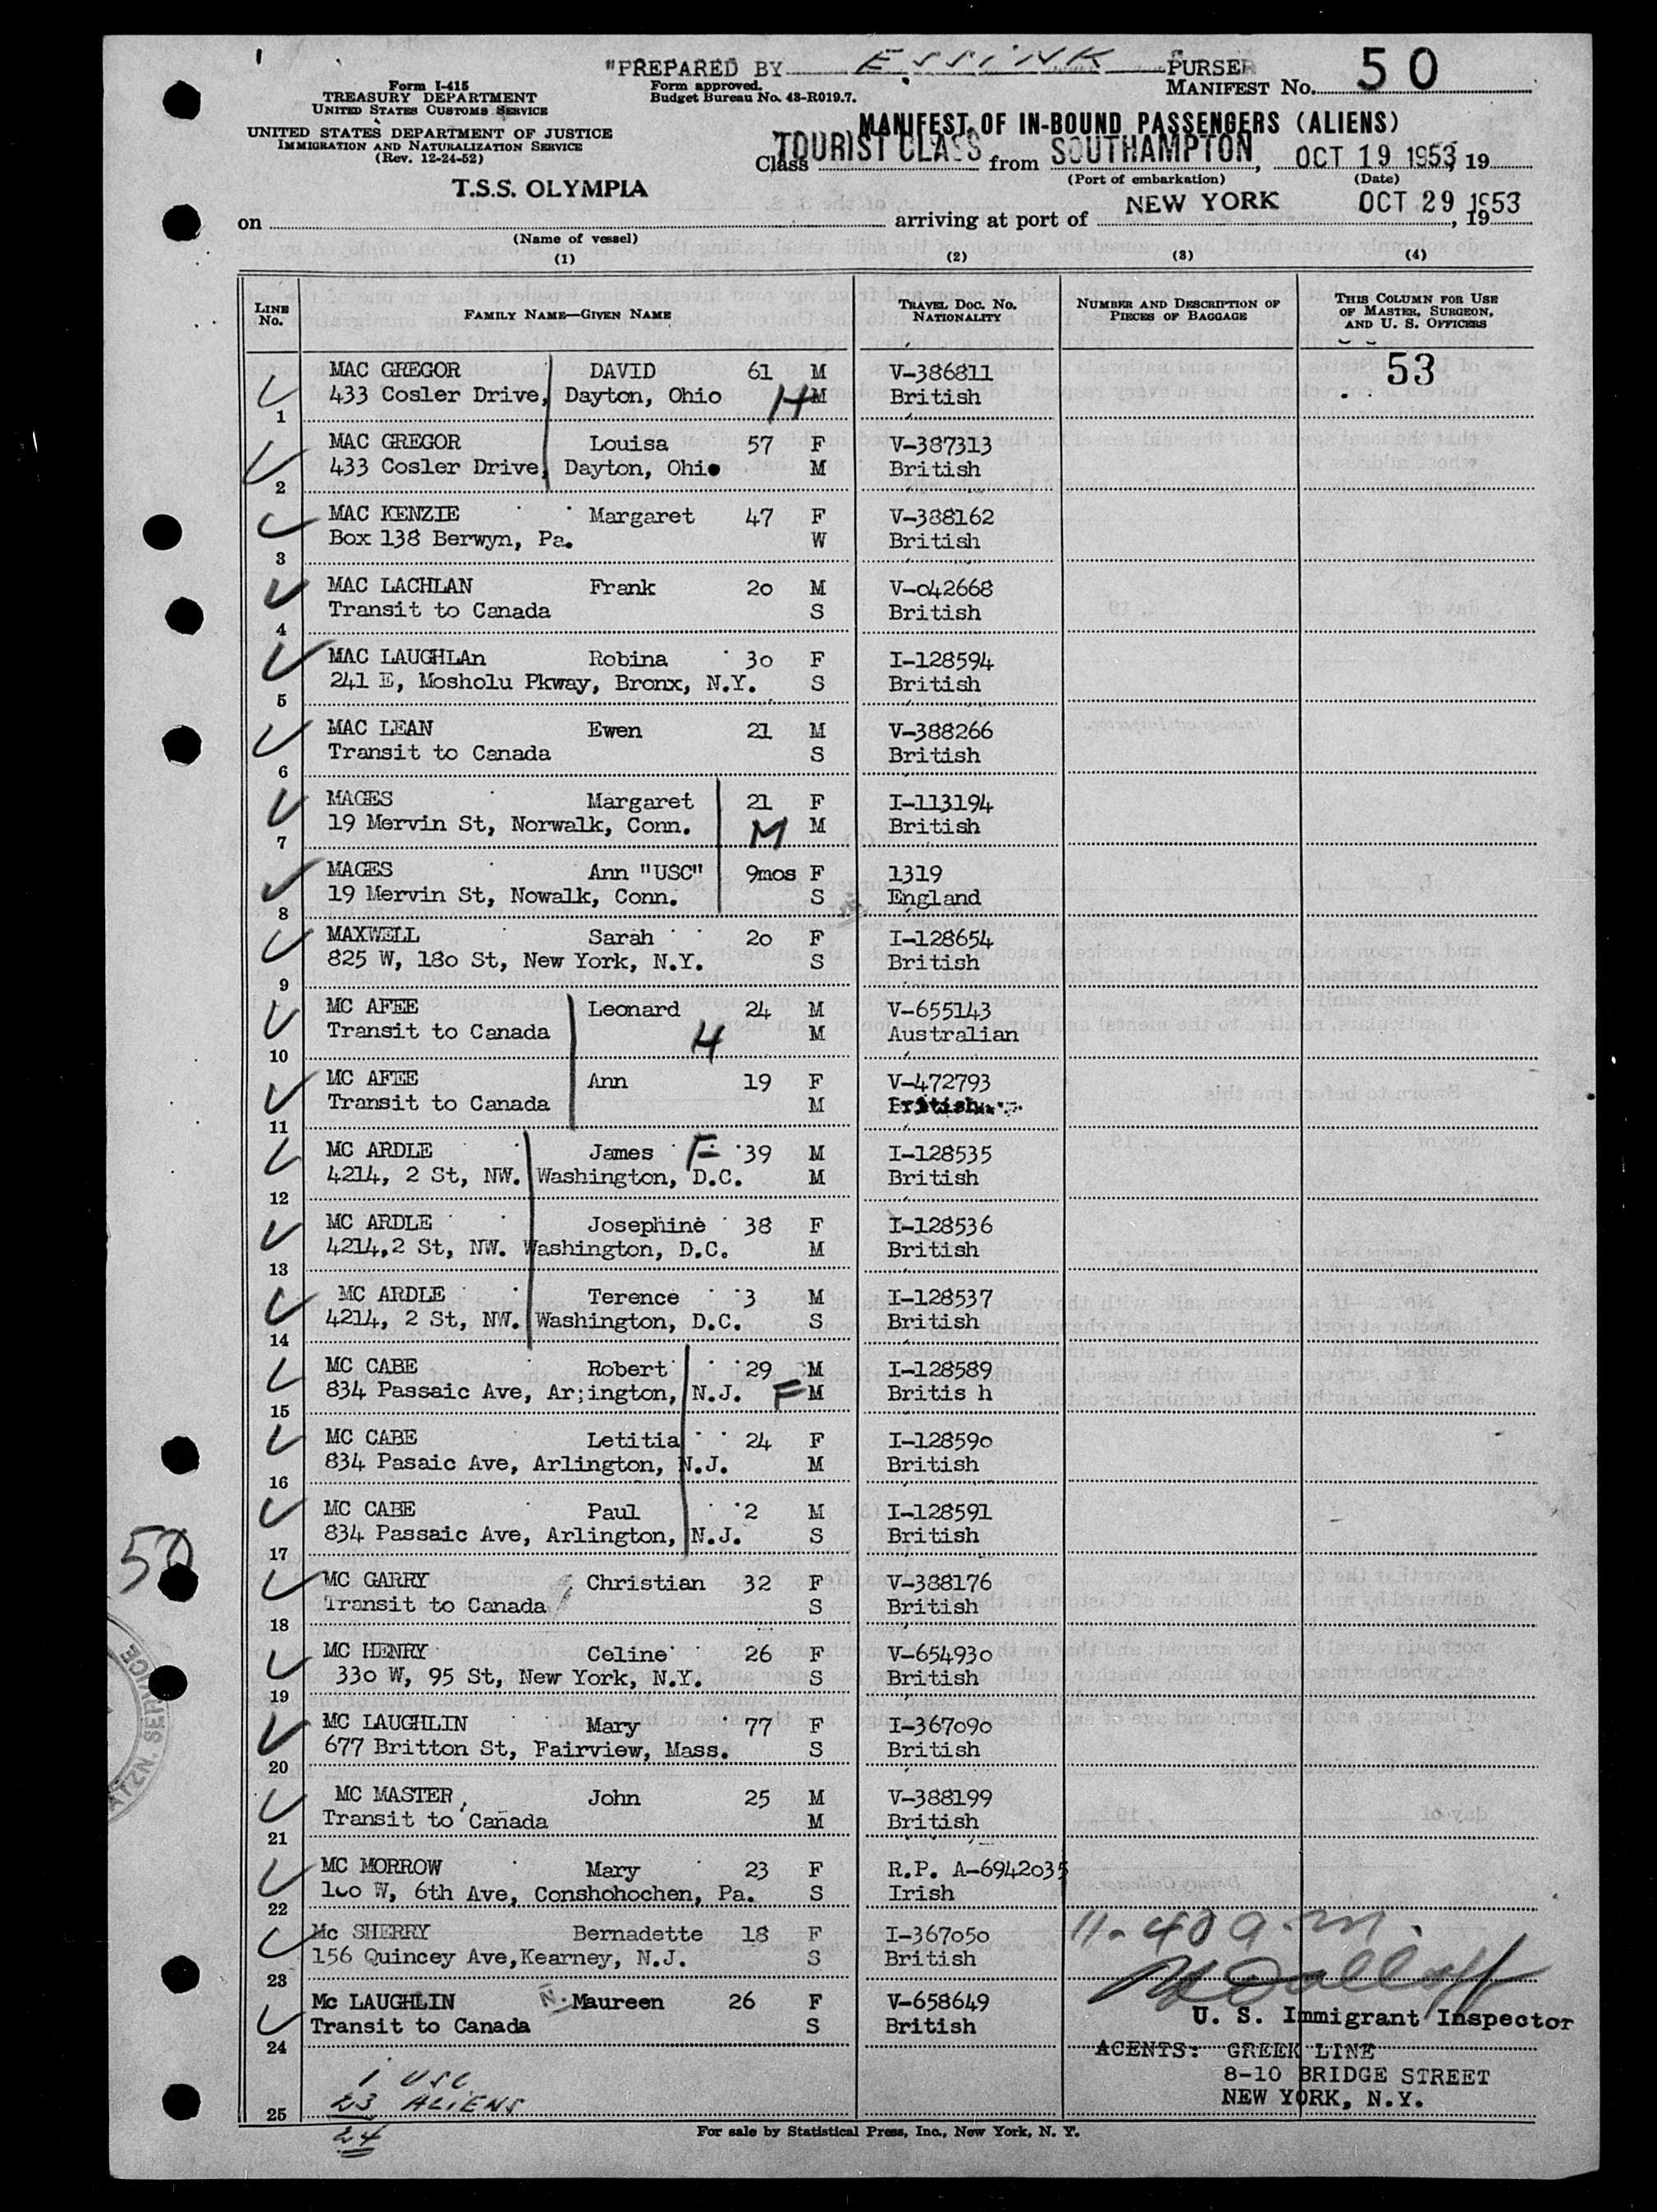 "PREPARED BY ESSINK PURSER
Form I-415
TREASURY DEPARTMENT
UNITED STATES CUSTOMS SERVICE
UNITED STATES DEPARTMENT OF JUSTICE
IMMIGRATION AND NATURALIZATION SERVICE
(Rev. 12-24-52)
Form approved.
Budget Bureau No. 43-R019.7.
MANIFEST No. 50
MANIFEST OF IN-BOUND PASSENGERS (ALIENS)
Class TOURIST CLASS from SOUTHAMPTON, OCT 19 1953, 19
(Port of embarkation) (Date)
T.S.S. OLYMPIA
on arriving at port of NEW YORK OCT 29 1953, 19
(Name of vessel)
(1) (2) (3) (4)
LINE No. FAMILY NAME—GIVEN NAME TRAVEL DOC. No. NATIONALITY NUMBER AND DESCRIPTION OF PIECES OF BAGGAGE THIS COLUMN FOR USE OF MASTER, SURGEON, AND U. S. OFFICERS
MAC GREGOR DAVID 61 M V-386811 53
433 Cosler Drive, Dayton, Ohio H M British
1
MAC GREGOR Louisa 57 F V-387313
433 Cosler Drive, Dayton, Ohio M British
2
MAC KENZIE Margaret 47 F V-388162
Box 138 Berwyn, Pa. W British
3
MAC LACHLAN Frank 20 M V-042668
Transit to Canada S British
4
MAC LAUGHLAn Robina 30 F I-128594
241 E, Mosholu Pkway, Bronx, N.Y. S British
5
MAC LEAN Ewen 21 M V-388266
Transit to Canada S British
6
MAGES Margaret 21 F I-113194
19 Mervin St, Norwalk, Conn. M M British
7
MAGES Ann "USC" 9mos F 1319
19 Mervin St, Nowalk, Conn. S England
8
MAXWELL Sarah 20 F I-128654
825 W, 180 St, New York, N.Y. S British
9
MC AFEE Leonard 24 M V-655143
Transit to Canada H M Australian
10
MC AFEE Ann 19 F V-472793
Transit to Canada M British
11
MC ARDLE James F 39 M I-128535
4214, 2 St, NW. Washington, D.C. M British
12
MC ARDLE Josephine 38 F I-128536
4214,2 St, NW. Washington, D.C. M British
13
MC ARDLE Terence 3 M I-128537
4214, 2 St, NW. Washington, D.C. S British
14
MC CABE Robert 29 M I-128589
834 Passaic Ave, Ar;ington, N.J. F M Britis h
15
MC CABE Letitia 24 F I-128590
834 Pasaic Ave, Arlington, N.J. M British
16
MC CABE Paul 2 M I-128591
834 Passaic Ave, Arlington, N.J. S British
17
50
MC GARRY Christian 32 F V-388176
Transit to Canada S British
18
MC HENRY Celine 26 F V-654930
330 W, 95 St, New York, N.Y. S British
19
MC LAUGHLIN Mary 77 F I-367090
677 Britton St, Fairview, Mass. S British
20
MC MASTER, John 25 M V-388199
Transit to Canada M British
21
MC MORROW Mary 23 F R.P. A-6942035
100 W, 6th Ave, Conshohochen, Pa. S Irish
22
Mc SHERRY Bernadette 18 F I-367050 11-40 a.m.
156 Quincey Ave,Kearney, N.J. S British
23
Mc LAUGHLIN N. Maureen 26 F V-658649
U. S. Immigrant Inspector
Transit to Canada S British
24
AGENTS: GREEK LINE
8-10 BRIDGE STREET
NEW YORK, N.Y.
1 USC
23 ALIENS
25
24
For sale by Statistical Press, Inc., New York, N. Y.